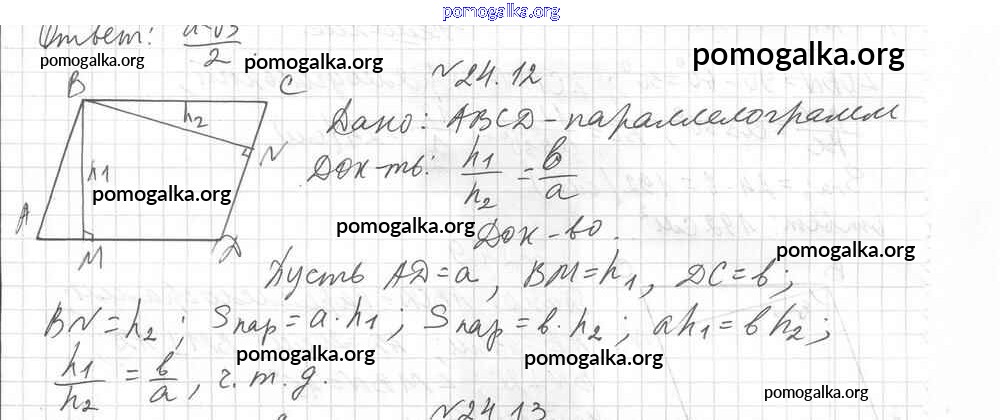 pomogalka.org
Ответ: a√3/2
pomogalka.org
pomogalka.org
pomogalka.org
№24.12
B
C
h2
Дано: ABCD - параллелограмм
N
Док-ть: h1/h2 = b/a
h1
pomogalka.org
A
M
D
pomogalka.org
Док-во.
pomogalka.org
Пусть AD=a, BM=h1, DC=b;
BN=h2; Sпар=a·h1; Sпар=b·h2; ah1=bh2;
pomogalka.org
pomogalka.org
h1/h2 = b/a, ч.т.д.
pomogalka.org
№24.13